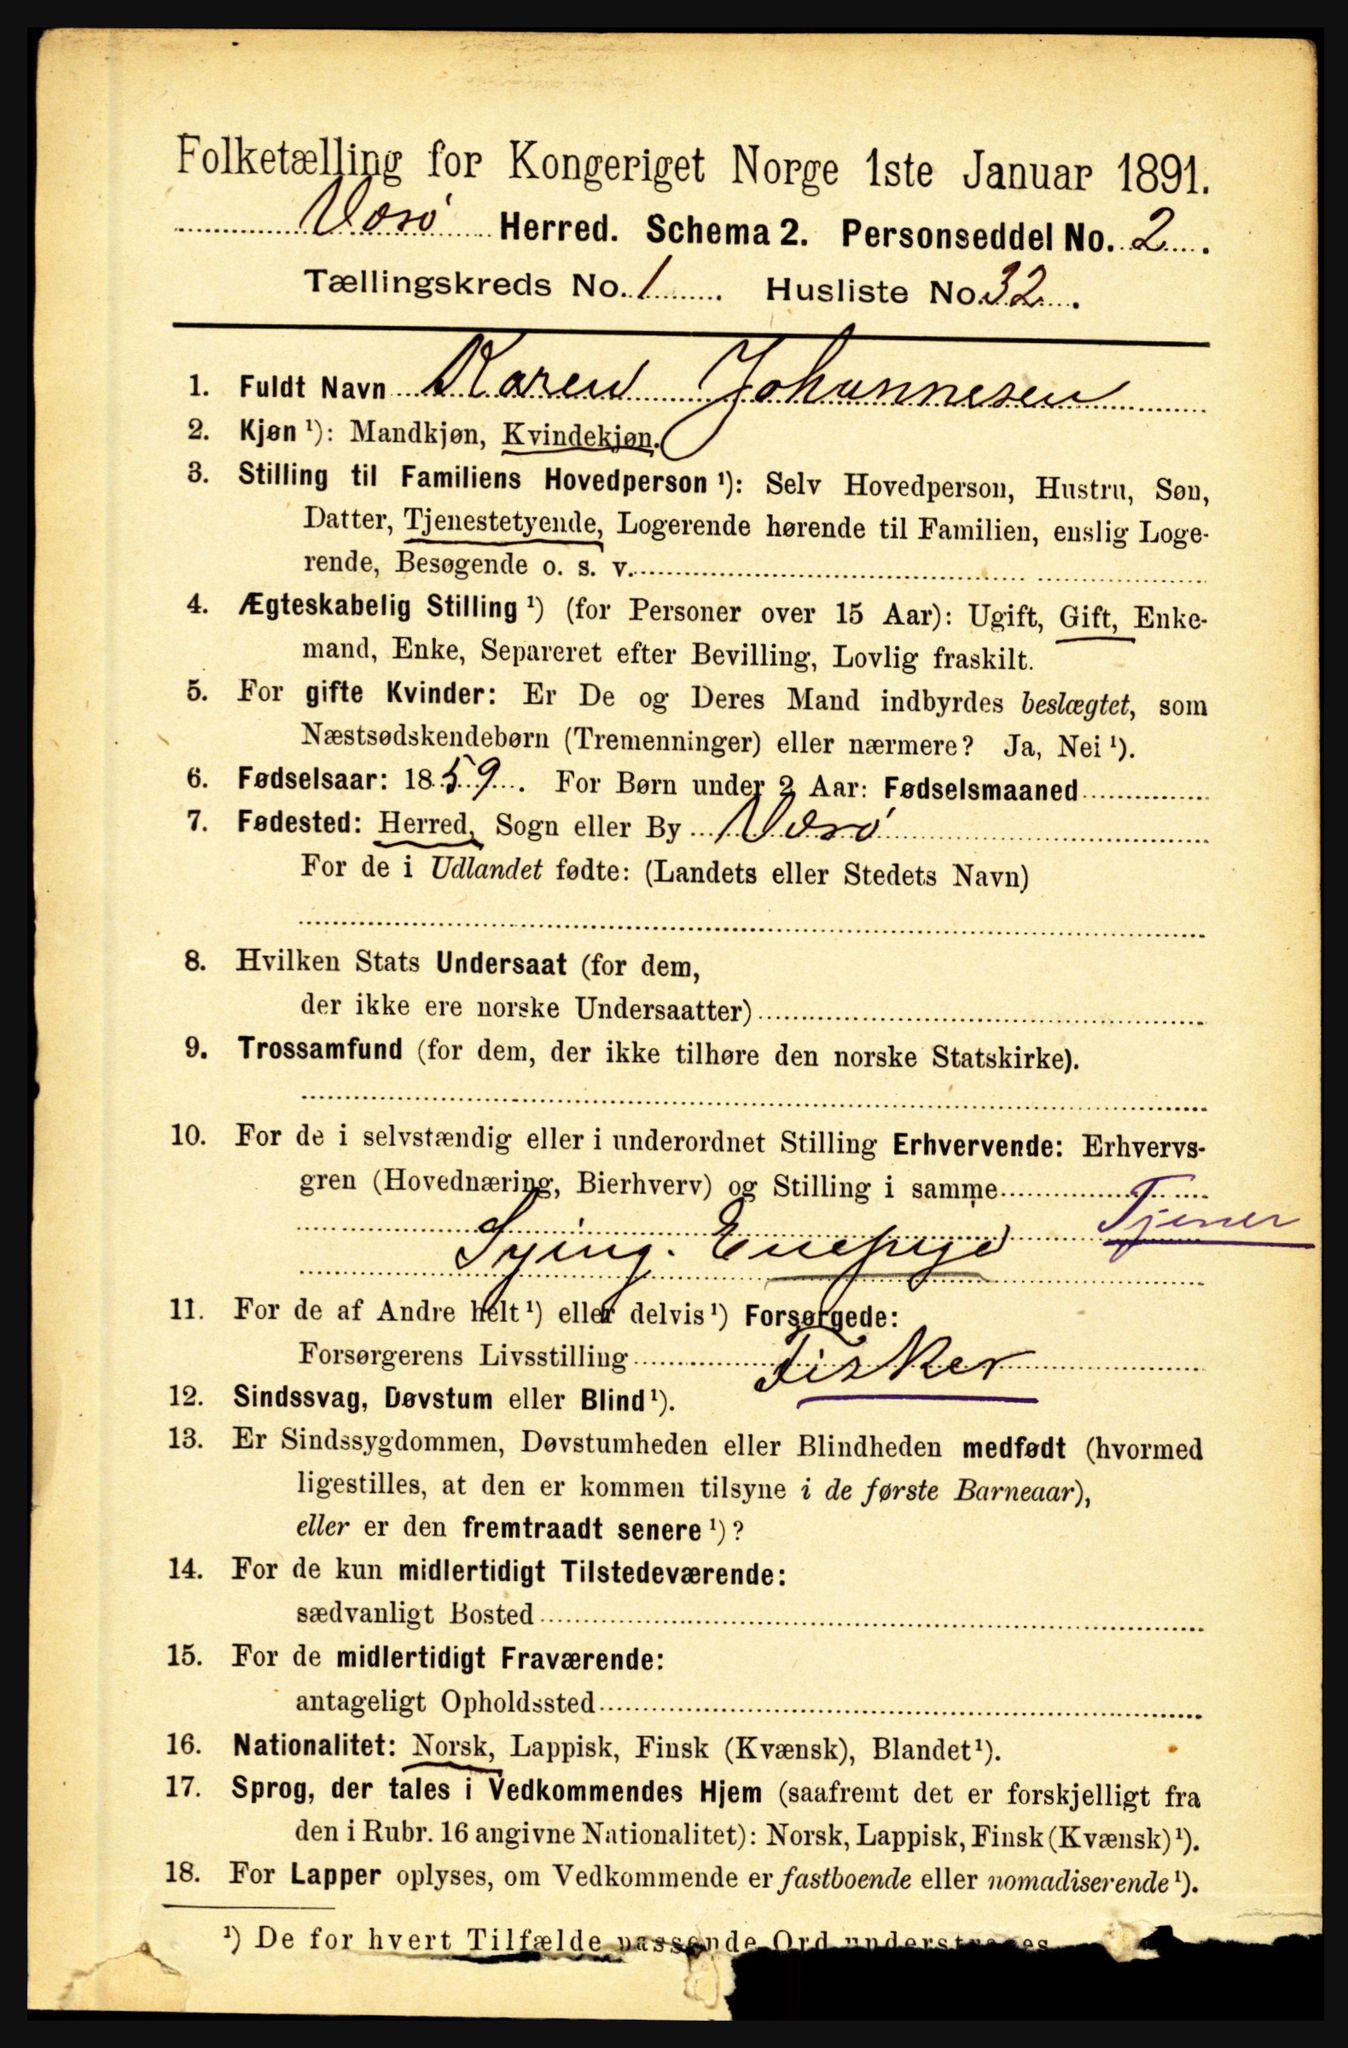 Folketælling for Kongeriget Norge 1ste Januar 1891.
Værø Herred. Schema 2. Personseddel No. 2.
Tællingskreds No. 1. Husliste No. 32.
1. Fuldt Navn Karen Johannesen
2. Kjøn ¹): Mandkjøn, Kvindekjøn.
3. Stilling til Familiens Hovedperson ¹): Selv Hovedperson, Hustru, Søn,
Datter, Tjenestetyende, Logerende hørende til Familien, enslig Loge-
rende, Besøgende o. s. v.
4. Ægteskabelig Stilling ¹) (for Personer over 15 Aar): Ugift, Gift, Enke-
mand, Enke, Separeret efter Bevilling, Lovlig fraskilt.
5. For gifte Kvinder: Er De og Deres Mand indbyrdes beslægtet, som
Næstsødskendebørn (Tremenninger) eller nærmere? Ja, Nei ¹).
6. Fødselsaar: 1859. For Børn under 2 Aar: Fødselsmaaned
7. Fødested: Herred, Sogn eller By Værø
For de i Udlandet fødte: (Landets eller Stedets Navn)
8. Hvilken Stats Undersaat (for dem,
der ikke ere norske Undersaatter)
9. Trossamfund (for dem, der ikke tilhøre den norske Statskirke).
10. For de i selvstændig eller i underordnet Stilling Erhvervende: Erhvervs-
gren (Hovednæring, Bierhverv) og Stilling i samme
Tjener
Sying.
11. For de af Andre helt ¹) eller delvis ¹) Forsørgede:
Forsørgerens Livsstilling Fisker
12. Sindssvag, Døvstum eller Blind ¹).
13. Er Sindssygdommen, Døvstumheden eller Blindheden medfødt (hvormed
ligestilles, at den er kommen tilsyne i de første Barneaar),
eller er den fremtraadt senere ¹)?
14. For de kun midlertidigt Tilstedeværende:
sædvanligt Bosted
15. For de midlertidigt Fraværende:
antageligt Opholdssted
16. Nationalitet: Norsk, Lappisk, Finsk (Kvænsk), Blandet ¹).
17. Sprog, der tales i Vedkommendes Hjem (saafremt det er forskjelligt fra
den i Rubr. 16 angivne Nationalitet): Norsk, Lappisk, Finsk (Kvænsk) ¹).
18. For Lapper oplyses, om Vedkommende er fastboende eller nomadiserende ¹).
¹) De for hvert Tilfælde passende Ord understreges